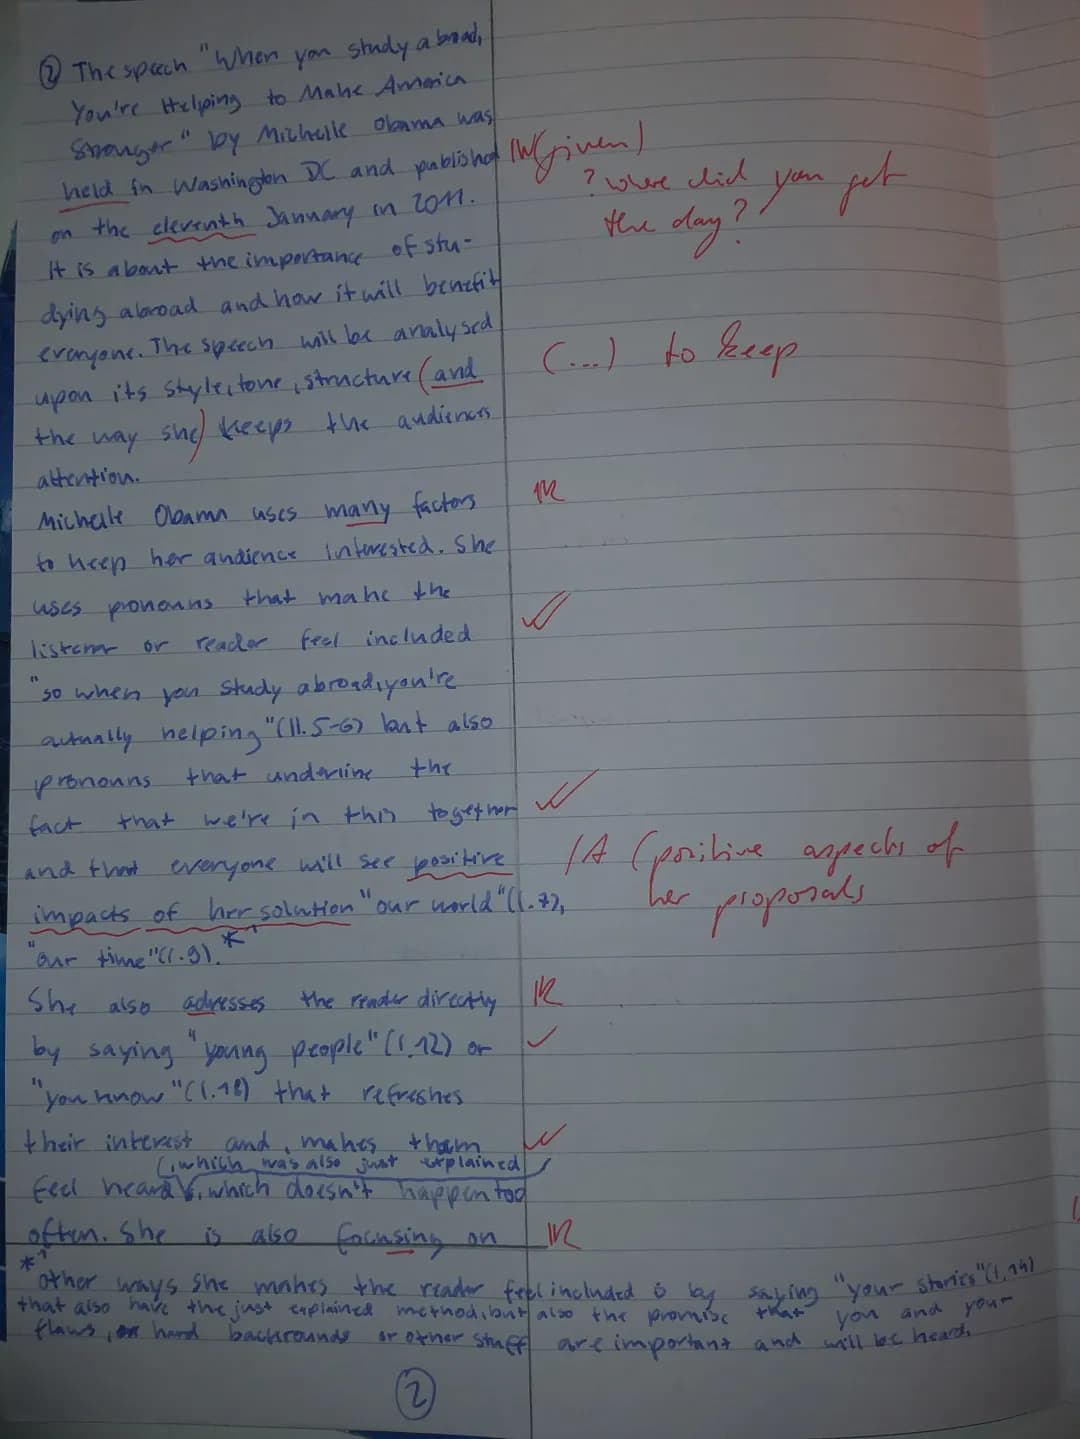 ② The speech "When you study abroad,
You're Helping to Make America
Stronger" by Michelle Obama was
held in Washington DC and published
on the eleventh January in 2011.
It is about the importance of stu-
dying abroad and how it will benefit
everyone. The speech will be analysed
upon its style, tone, structure (and
the way she) keeps the audiences
attention.
Michelle Obama uses many factors
to keep her audience interested. She
uses pronouns that make the
listener or reader feel included
"so when you study abroad, you're
actually helping" (ll. 5-6) but also
pronouns that underline the
fact that we're in this together
and that everyone will see positive
impacts of her solution "our world" (l. 7),
"our time" (l. 9).*¹
She also adresses the reader directly
by saying "young people" (l. 12) or
"you know" (l. 18) that refreshes
their interest and, makes them
(, which was also just explained
feel heard, which doesn't happen too
often. She is also focusing on
*¹ other ways she makes the reader feel included is by saying "your stories" (l. 14)
that also have the just explained method, but also the promise that you and your
flaws, hard backrounds or other stuff are important and will be heard.
2
W (given)
? Where did you get
the day?
(...) to keep
R
A (positive aspects of
her proposals
R
R